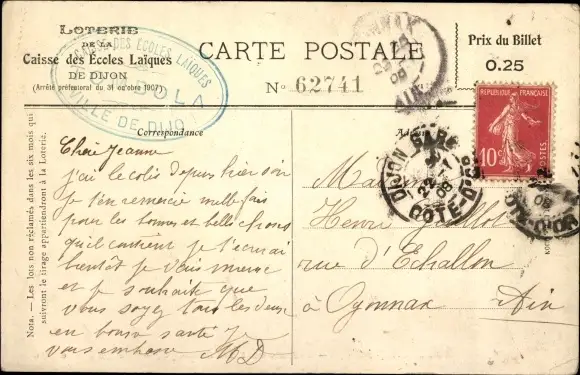 LOTERIE
DE LA
Caisse des Écoles Laïques
DE DIJON
(Arrêté préfectoral du 31 octobre 1907)
CAISSE DES ÉCOLES LAÏQUES
VILLE DE DIJON
CARTE POSTALE
No 62741
Prix du Billet
0.25
RÉPUBLIQUE FRANÇAISE
10c
POSTES
OYONNAX
AIN
DIJON GARE
22 - 1
08
COTE-D'OR
08
COTE-D'OR
Correspondance
Nota. — Les lots non réclamés dans les six mois qui
suivront le tirage appartiendront à la Loterie.
Chère Jeanne
j'ai le colis depuis hier soir
je t'en remercie mille fois
pour les bonnes et belles choses
qu'il contient je t'écrirai
bientôt je vais mieux
et je souhaite que
vous soyez tous les deux
en bonne santé je
vous embrasse MD
Madame
Henri
rue d'Echallon
à Oyonnax Ain